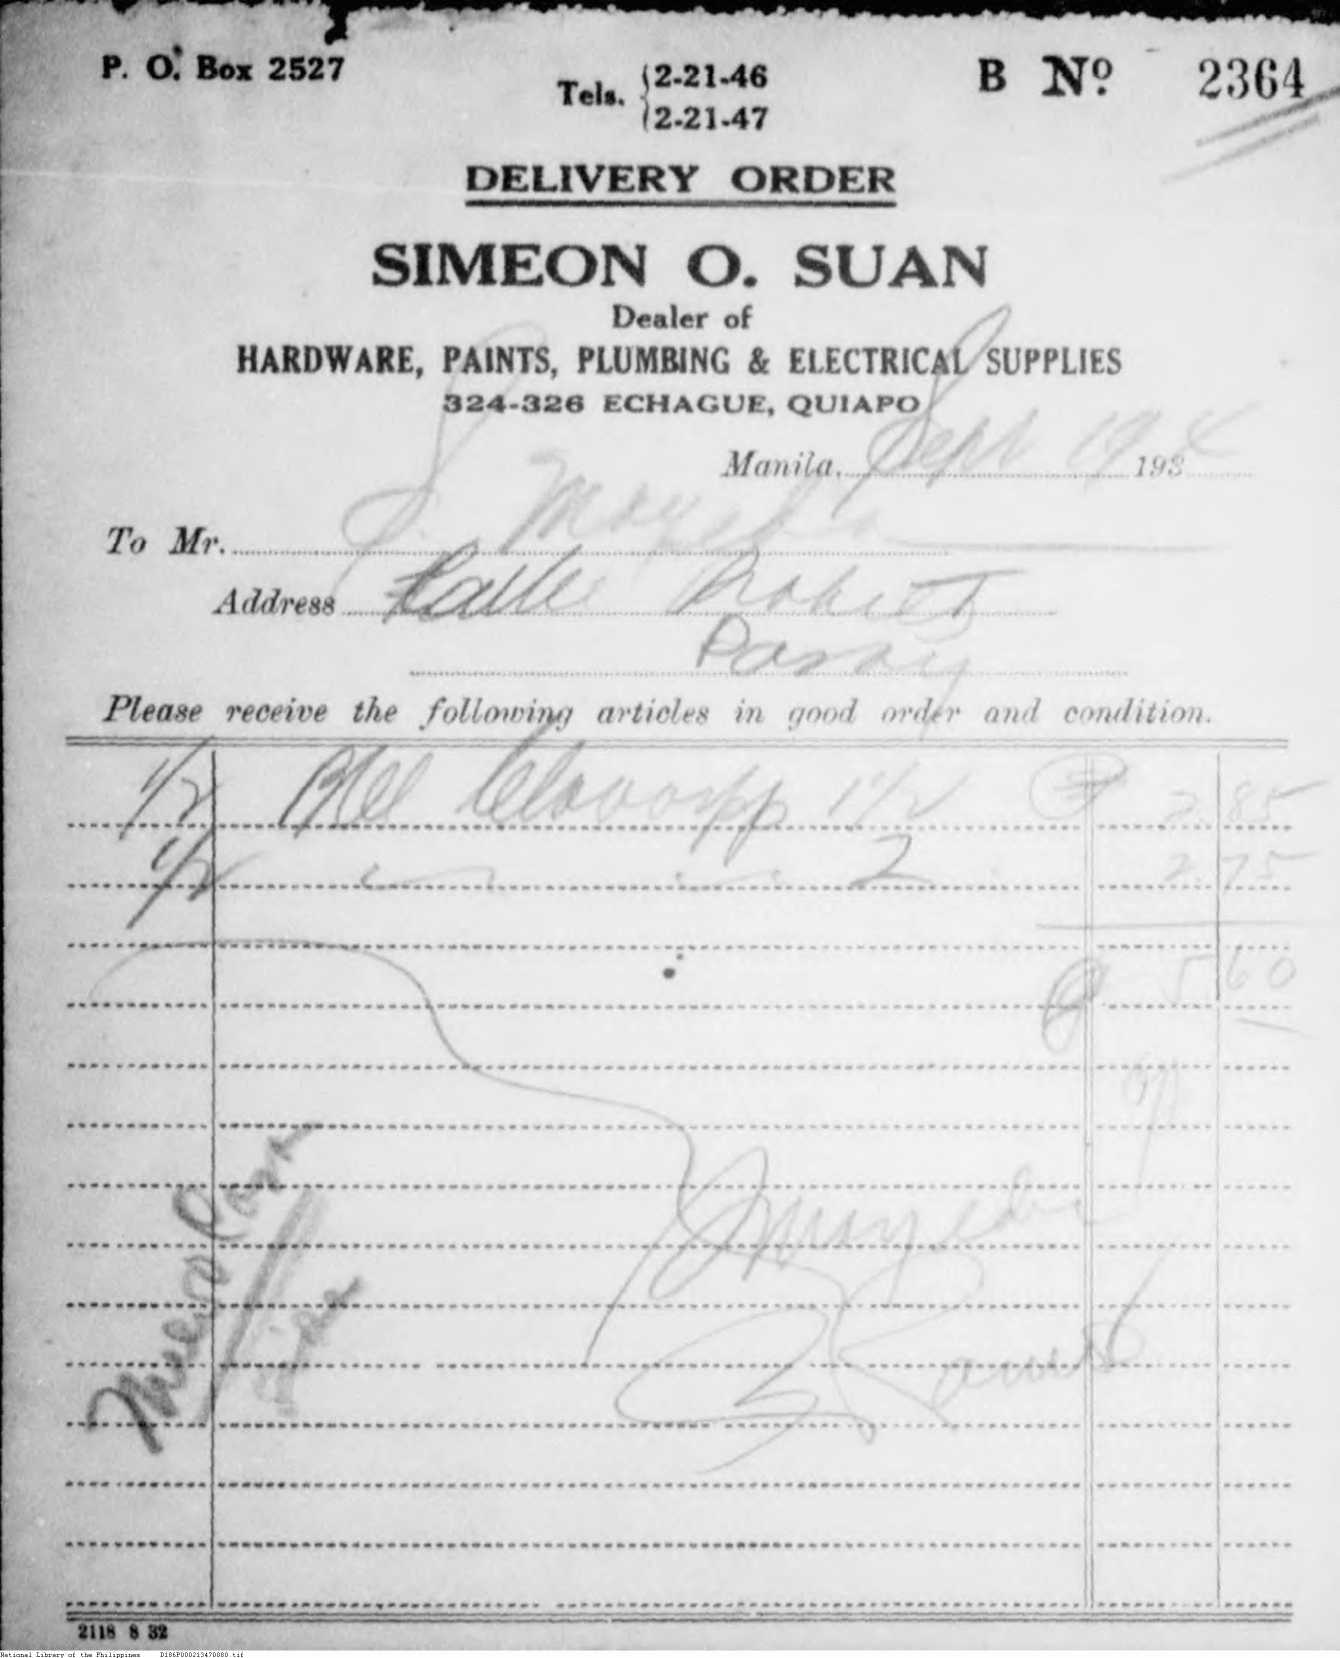 P. O. Box 2527
Tels. 2-21-46
2-21-47
B Nº 2364
DELIVERY ORDER
SIMEON O. SUAN
Dealer of
HARDWARE, PAINTS, PLUMBING & ELECTRICAL SUPPLIES
324-326 ECHAGUE, QUIAPO
Manila, Sept 19 1934
To Mr. S. Mayeda
Address Calle
Pasay
Please receive the following articles in good order and condition.
1/2 Bll 1 1/2 ₱ 2.85
1/2 2 2.75
₱ 5.60
Mayeda
2118 8 32
National Library of the Philippines D186P000213470080.tif